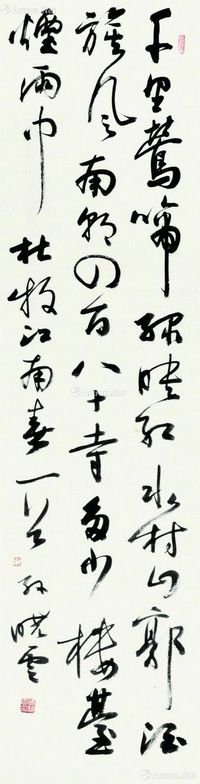 千里鶯啼綠映紅水村山郭酒
旗風南朝四百八十寺多少樓臺
煙雨中 杜牧江南春一首 孫曉雲